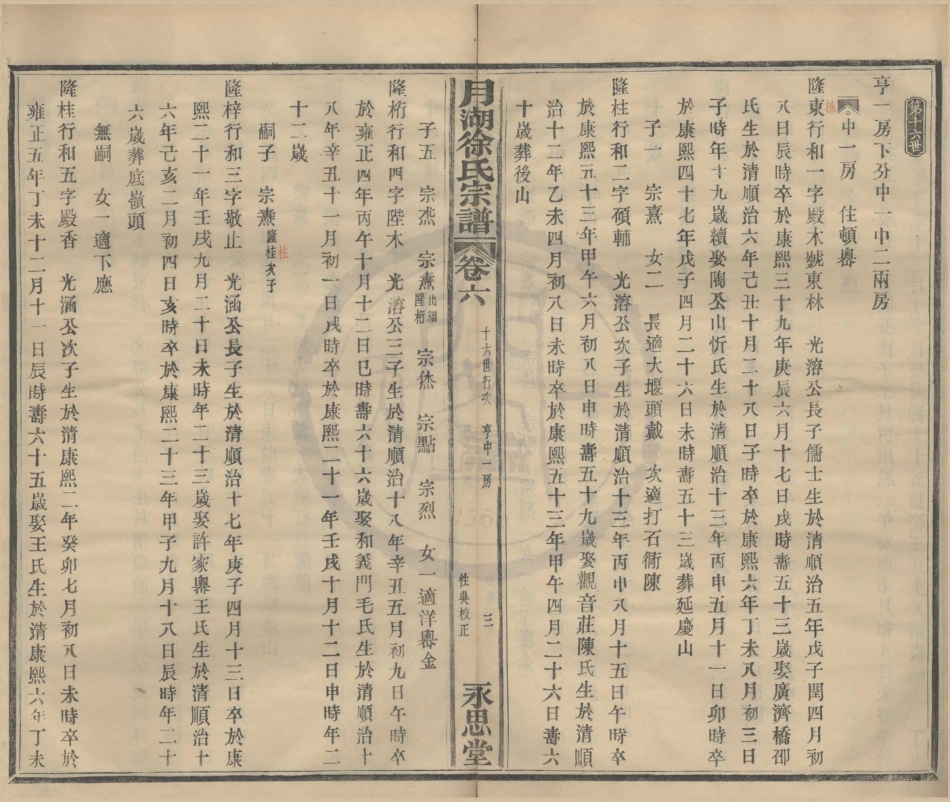 第十六世
亨一房下分中一中二兩房
中一房　住頓嶴
隆東行和一字殿木號東林　光溶公長子儒士生於清順治五年戊子閏四月初
八日辰時卒於康熙三十九年庚辰六月十七日戌時壽五十三歲娶廣濟橋邵
氏生於清順治六年己丑十月二十八日子時卒於康熙六年丁未八月初三日
子時年十九歲續娶陶公山忻氏生於清順治十三年丙申五月十一日卯時卒
於康熙四十七年戊子四月二十六日未時壽五十三歲葬延慶山
子一　宗熹　女二　長適大堰頭戴　次適打石衕陳
隆柱行和二字碩輔　光溶公次子生於清順治十三年丙申八月十五日午時卒
於康熙五十三年甲午六月初八日申時壽五十九歲娶觀音莊陳氏生於清順
治十二年乙未四月初八日未時卒於康熙五十三年甲午四月二十六日壽六
十歲葬後山
月湖徐氏宗譜　卷六　十六世行次　亨中一房　三　性吳校正　永思堂
子五　宗杰　宗燾出繼隆桁　宗烋　宗點　宗烈　女一適洋嶴金
隆桁行和四字陛木　光溶公三子生於清順治十八年辛丑五月初九日午時卒
於雍正四年丙午十月十二日巳時壽六十六歲娶和義門毛氏生於清順治十
八年辛丑十一月初一日戌時卒於康熙二十一年壬戌十月十二日申時年二
十二歲
嗣子　宗燾隆桂次子
柱
隆梓行和三字敬止　光涵公長子生於清順治十七年庚子四月十三日卒於康
熙二十一年壬戌九月二十日未時年二十三歲娶許家嶴王氏生於清順治十
六年己亥二月初四日亥時卒於康熙二十三年甲子九月十八日辰時年二十
六歲葬底嶺頭
無嗣　女一適下應
隆桂行和五字殿香　光涵公次子生於清康熙二年癸卯七月初八日未時卒於
雍正五年丁未十二月十一日辰時壽六十五歲娶王氏生於清康熙六年丁未